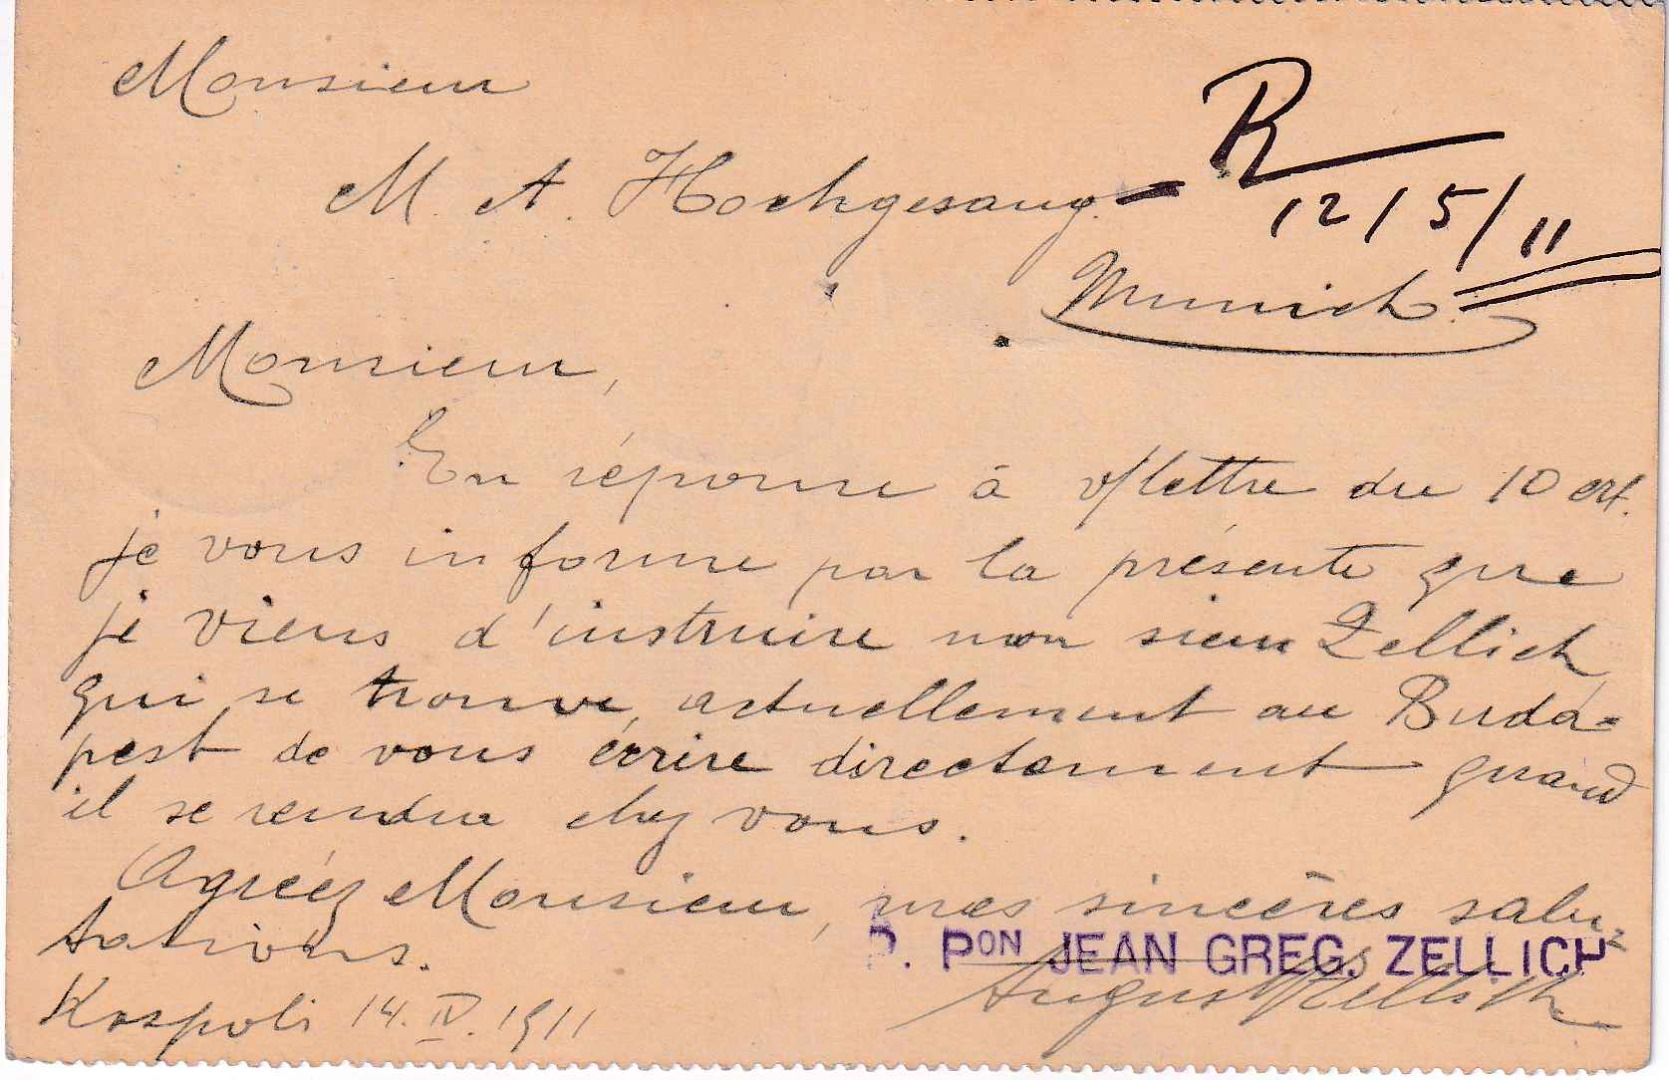 Monsieur
M. A. Hochgesang.
R
12/5/11
Munich
Monsieur,
En réponse à v/lettre du 10 crt.
je vous informe par la présente que
je viens d'instruire mon sieur Zellich
qui se trouve actuellement au Buda=
pest de vous écrire directement quand
il se rendra chez vous.
Agréez Monsieur, mes sincères salu=
tations.
P. PON JEAN GREG. ZELLICH
August Zellich
Kospoli 14. IV. 1911